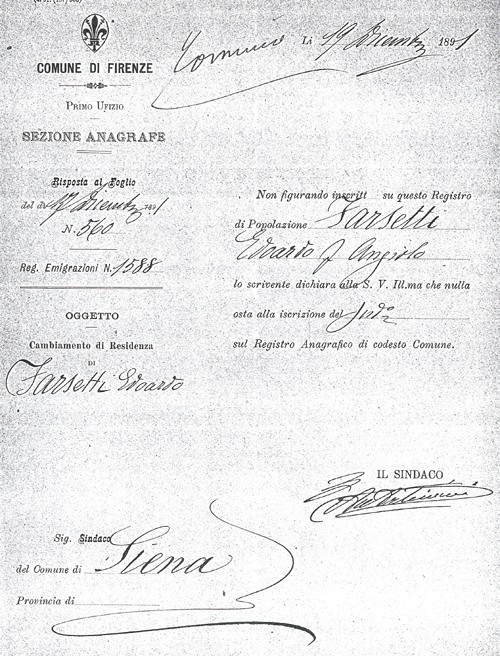 COMUNE DI FIRENZE
PRIMO UFIZIO
SEZIONE ANAGRAFE
Risposta al Foglio
del dì 17 Dicembre 1891
N. 560
Reg. Emigrazioni N. 1588
OGGETTO
Cambiamento di Residenza
DI
Farsetti Edoardo
Lì 19 Dicembre 1891
Non figurando inscritt su questo Registro
di Popolazione Farsetti
Edoardo f Angiolo
lo scrivente dichiara alla S. V. Ill.ma che nulla
osta alla iscrizione del
sul Registro Anagrafico di codesto Comune.
IL SINDACO
Sig. Sindaco
del Comune di Siena
Provincia di